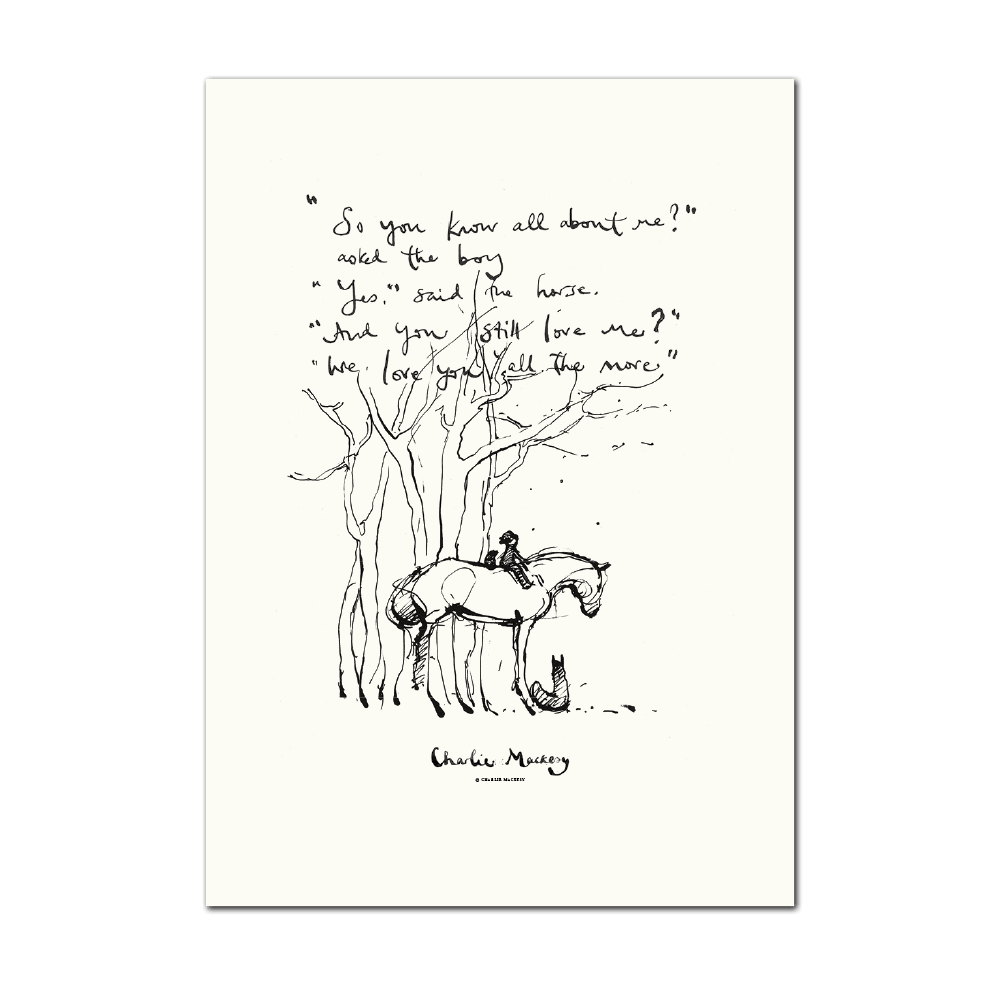 "So you know all about me?"
asked the boy
"Yes." said the horse.
"And you still love me?"
"We love you all the more."
Charlie Mackesy
© CHARLIE MACKESY